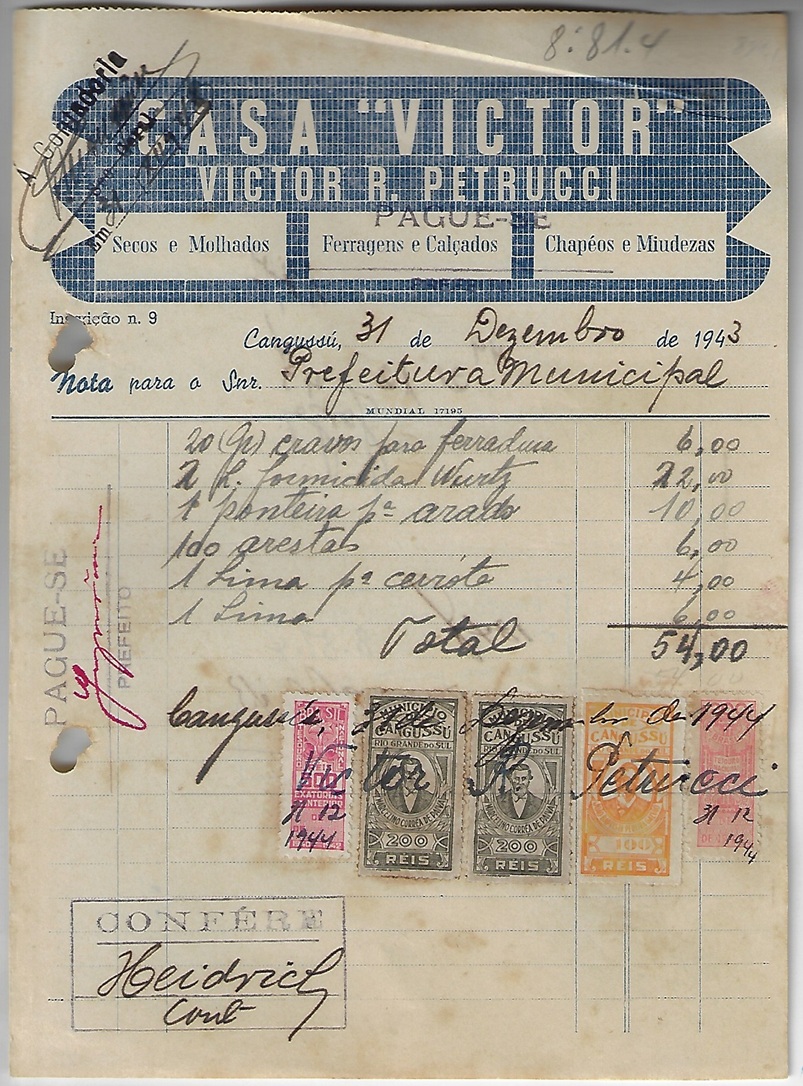 8:81.4
Á Contadoria
Em 31
CASA "VICTOR"
VICTOR R. PETRUCCI
PAGUE-SE
Secos e Molhados Ferragens e Calçados Chapéos e Miudezas
Inscrição n. 9
Cangussú, 31 de Dezembro de 1943
Nota para o Snr. Prefeitura Municipal
MUNDIAL 17195
20 (Gr) cravos para ferradura 6,00
2 L. formicida Wurtz 22,00
1 ponteira pª arado 10,00
100 arestas 6,00
1 Lima pª cerróte 4,00
1 Lima 6,00
Total 54,00
PAGUE-SE
PREFEITO
Cangussú, 31 de Dezembro de 1944
Victor R. Petrucci
31 12
1944
MUNICIPIO
CANGUSSÚ
RIO GRANDE DO SUL
MARCELINO CORRÊA DE PAIVA
200
REIS
MUNICIPIO
CANGUSSÚ
RIO GRANDE DO SUL
MARCELINO CORRÊA DE PAIVA
200
REIS
CANGUSSÚ
100
REIS
31 12
1944
CONFÉRE
Heidrich
Cont